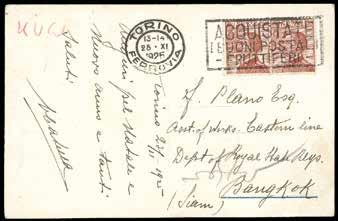 TORINO
13-14
28·XI
1925
FERROVIA
ACQUISTATE
I BUONI POSTALI
-FRUTTIFERI-
Torino 28/11 1925
Auguri pel Natale e
Nuovo anno e tanti
Saluti
Plano Esq.
Asst. of Works. Eastern line
Dept of Royal State Rlys.
Bangkok
(Siam)